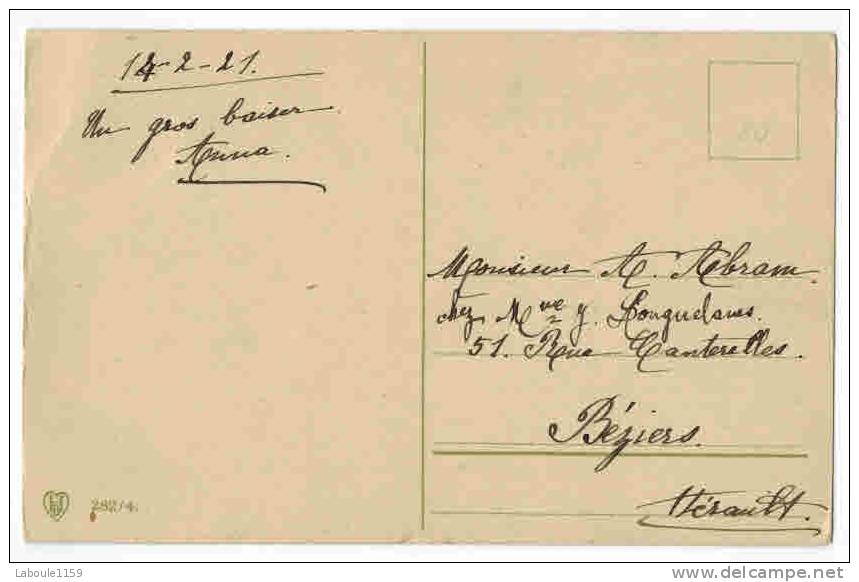 14-2-21.
Un gros baiser
Anna.
80
Monsieur A. Abram.
chez Mve J. Longuelanes.
51. Rue Canterelles.
Béziers.
Hérault.
282/4.
Laboule1159
delcampe.net